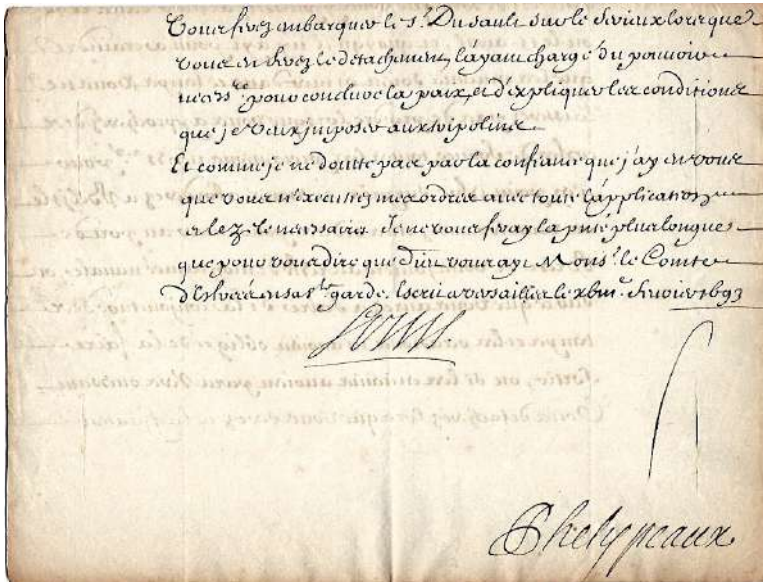 Vous ferez embarquer le s.r Du sault sur le Serieux lorsque
vous en ferez le detachement, l'ayant chargé du pouvoir
necess.re pour conclure la paix, et d'expliquer les conditions
que je veux imposer aux tripolins.
Et comme je ne doutte pas par la confiance que j'ay en vous
que vous n'executiez mes ordres avec toute l'application
et le zele necessaires Je ne vous feray la p.nte plus longue
que pour vous dire que Dieu vous ayt Mons.r le Comte
d'Estrées en sa s.te garde. Escrit a versailles le fevrier 1693
Louis
Phelypeaux